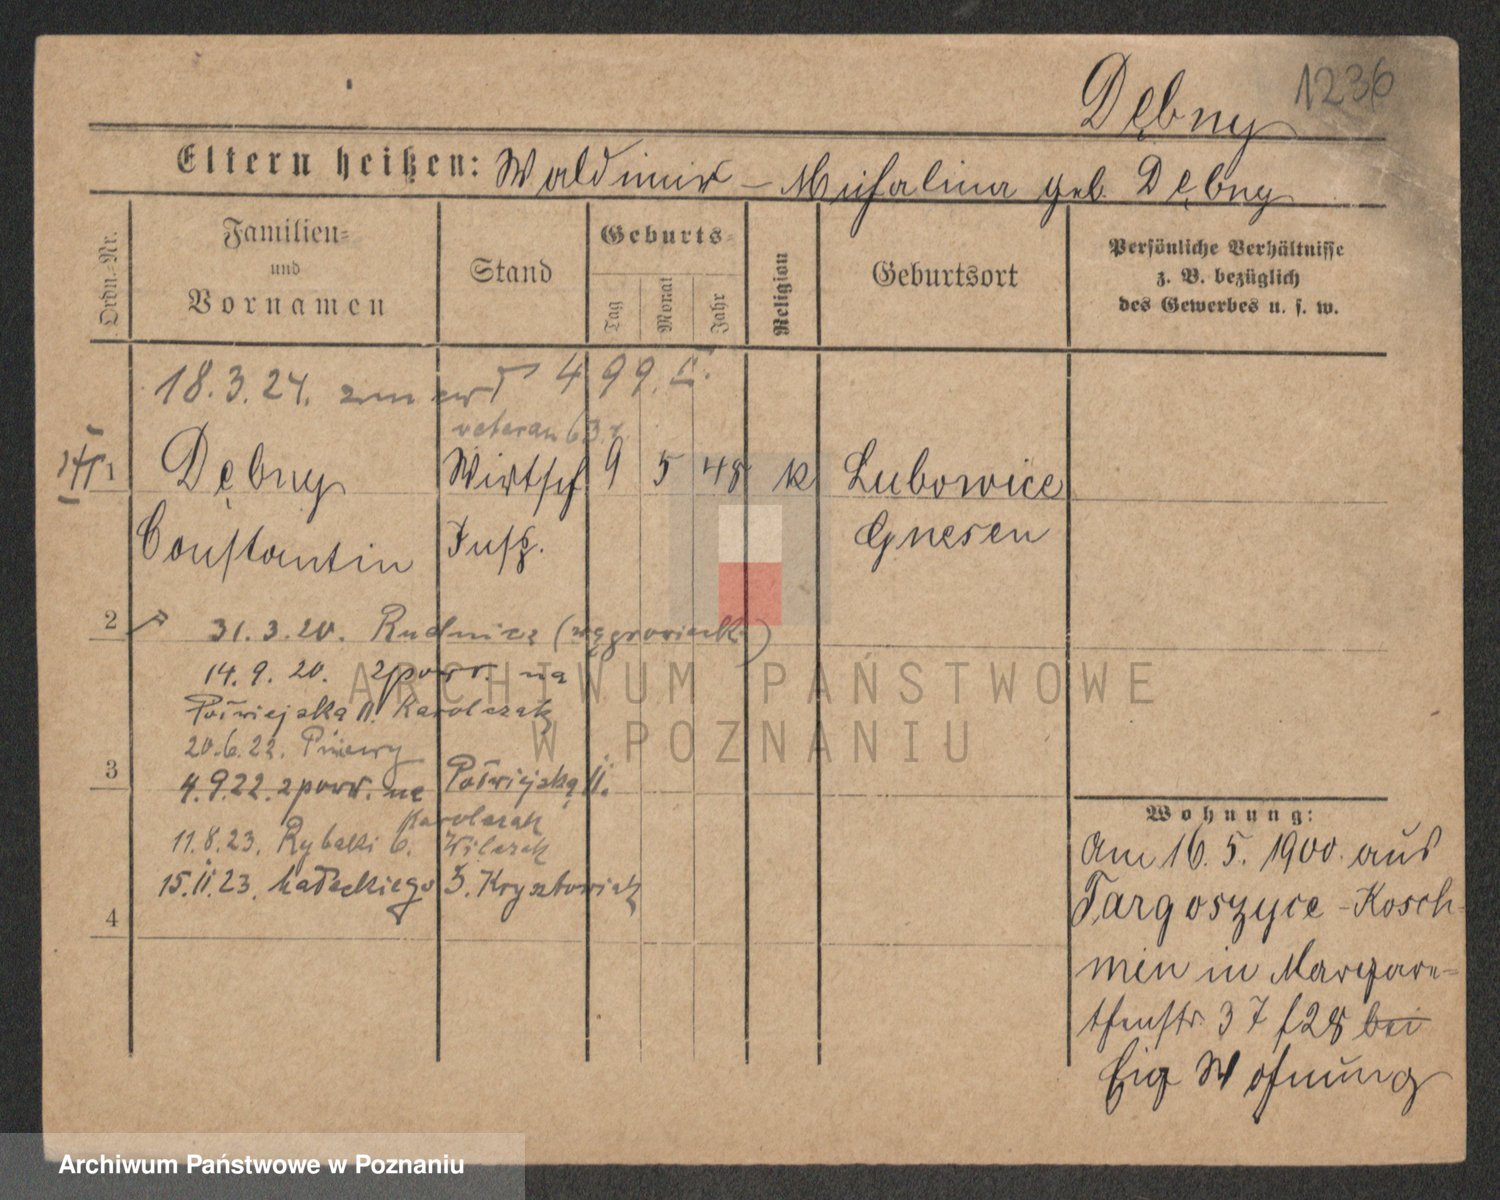 1236
Dębny
Eltern heißen: Waldimir – Michalina geb. Dębny
Ordn.-Nr.
Familien-
und
Vornamen
Stand
Geburts-
Tag
Monat
Jahr
Religion
Geburtsort
Persönliche Verhältnisse
z. B. bezüglich
des Gewerbes u. s. w.
18.3.24. 499. II.
veteran 63 r
1 Dębny Wirtsch 9 5 48 k Lubowice
Constantin Insp. Gnesen
2 31.3.20. Rudnicz (wągrowiecki)
14.9.20. z powr. na
Półwiejska 11. Karolczak
20.6.22. Pniewy
3 4.9.22. z powr. na Półwiejską 11.
Karolczak
11.8.23. Rybaki 6. Wilczak
15.11.23. Małeckiego 3. Krysztowiak
4
Wohnung:
Am 16.5.1900 aus
Targoszyce - Kosch-
min in Margare-
thenstr. 37 f 28 bei
Eig Wohnung
ARCHIWUM PAŃSTWOWE
W POZNANIU
Archiwum Państwowe w Poznaniu